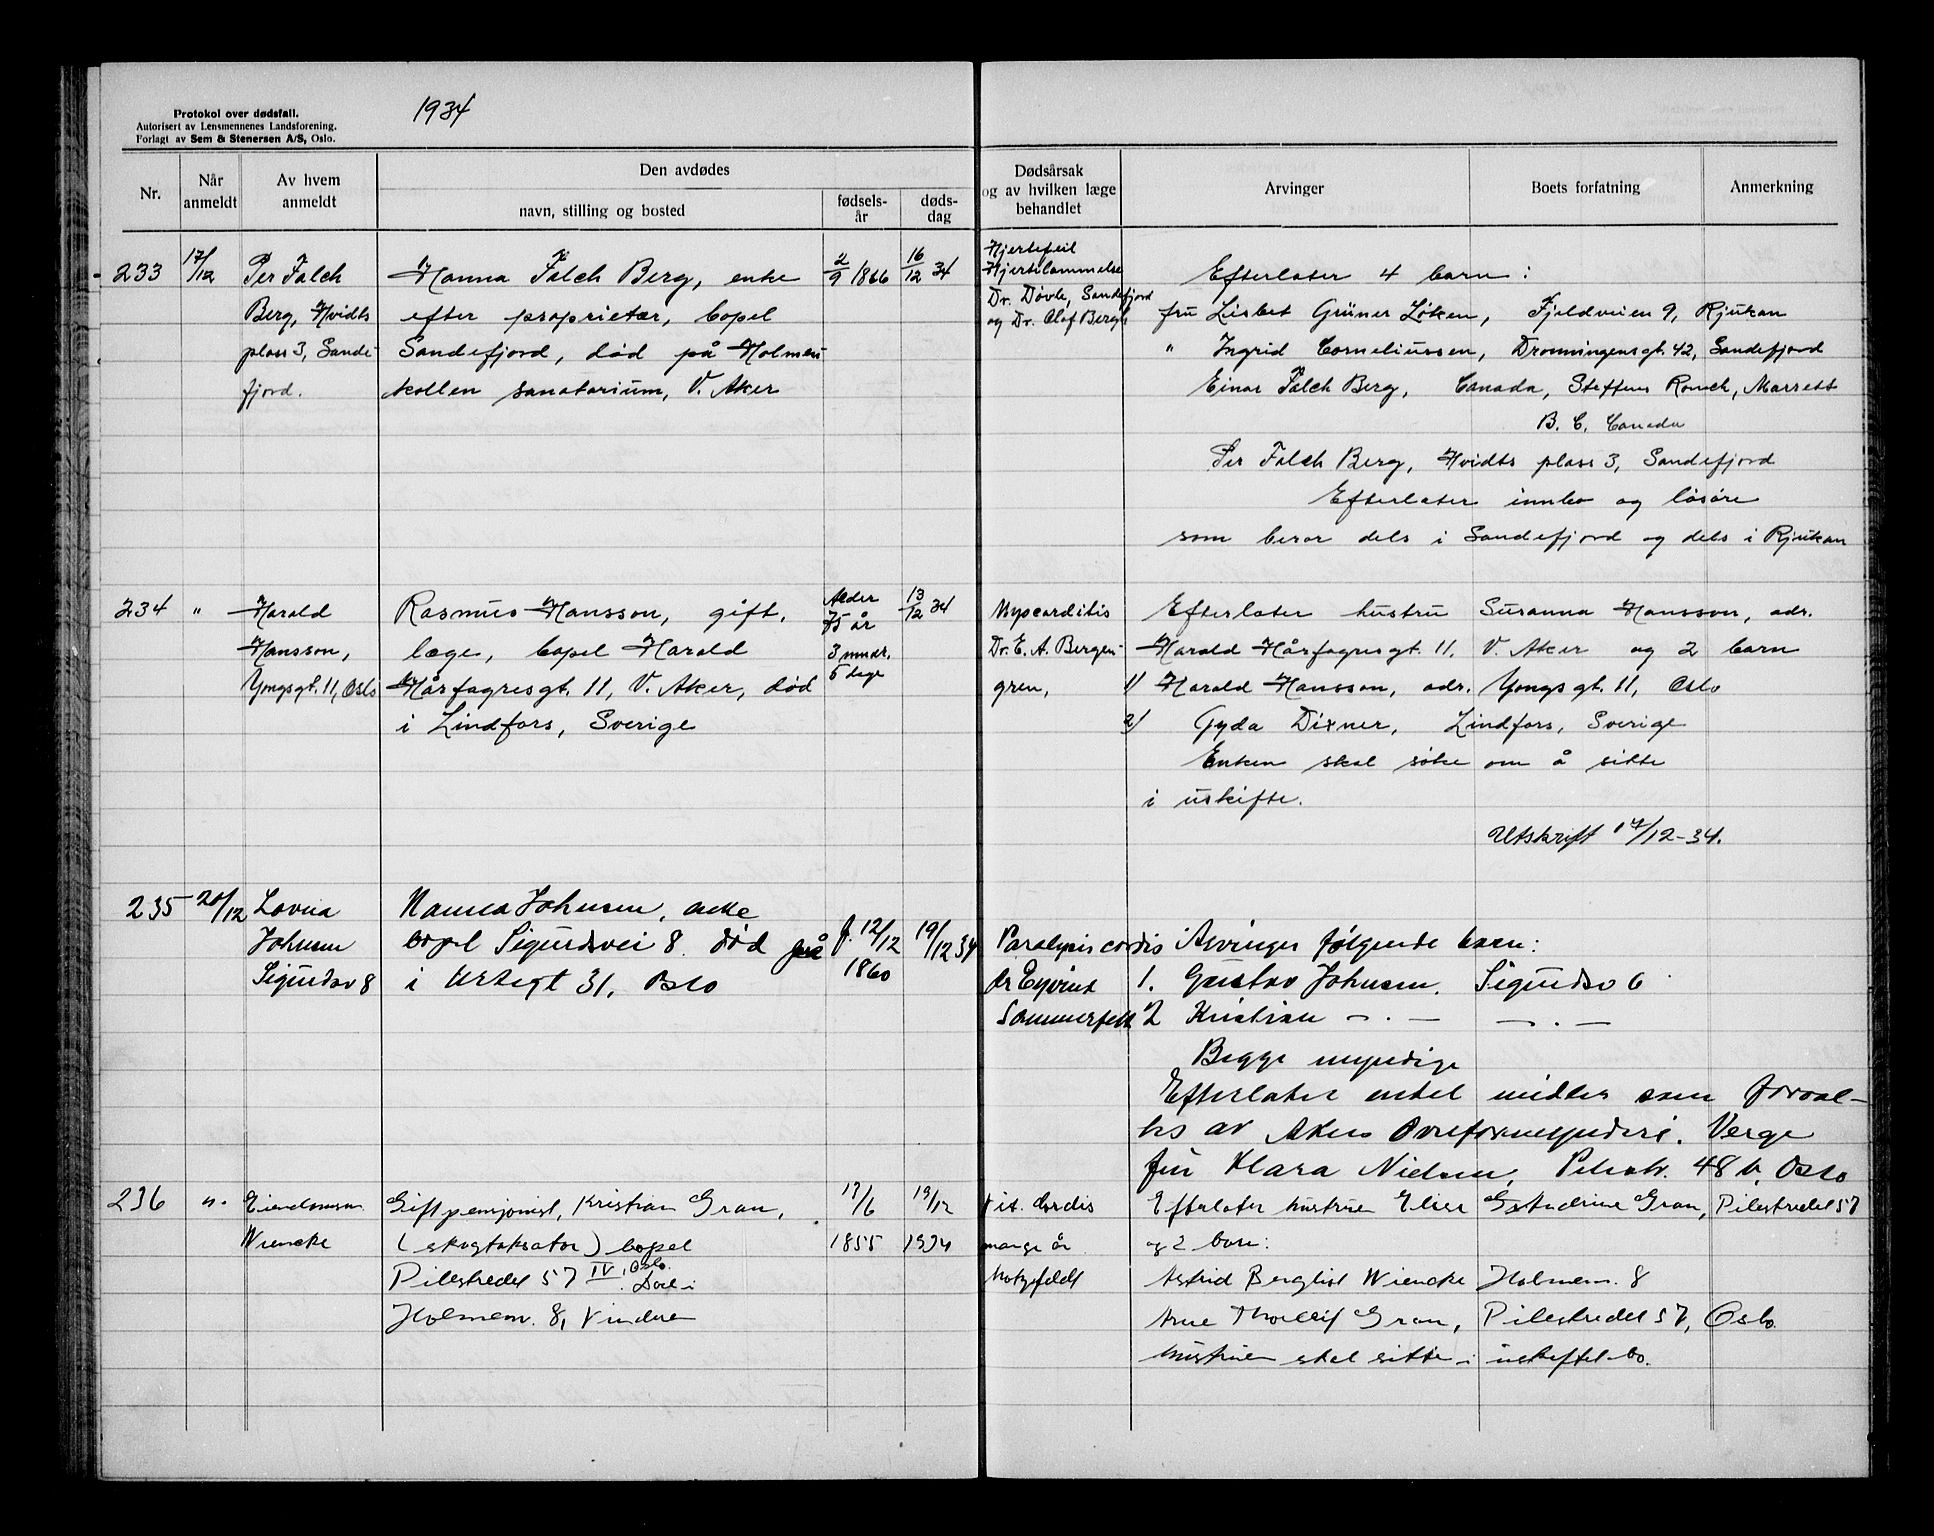 1934
Protokol over dødsfall.
Autorisert av Lensmennenes Landsforening.
Forlagt av Sem & Stenersen A/S, Oslo.
Nr.
Når anmeldt
Av hvem anmeldt
Den avdødes
navn, stilling og bosted
fødsels-år
døds-dag
Dødsårsak og av hvilken læge behandlet
Arvinger
Boets forfatning
Anmerkning
233 17/12 Per Falch Hanna Falch Berg, enke 2/9 1866 16/12 34
Berg, Hvidts efter proprietær, bopel
plass 3, Sande- Sandefjord, død på Holmen-
fjord. kollen sanatorium, V. Aker
Hjertefeil
Hjertelammelse
Dr. Døvle, Sandefjord
og Dr. Olaf Bergh
Efterlater 4 barn:
fru Lisbet Grüner Løken, Fjeldveien 9, Rjukan
" Ingrid Corneliussen, Dronningensgt. 42, Sandefjord
Einar Falch Berg, Canada, Steffens Ranch, Marrett
B. C. Canada
Per Falch Berg, Hvidts plass 3, Sandefjord
Efterlater innbo og løsøre
som beror dels i Sandefjord og dels i Rjukan
234 " Harald Rasmus Hansson, gift, Alder 13/12 34
75 år
Hansson, læge, bopel Harald 3 mndr.
Yongsgt. 11, Oslo Hårfagresgt. 11, V. Aker, død 6 dage
i Lindfors, Sverige
Mycarditis Efterlater hustru Susanna Hansson, adr.
Dr. E. A. Bergen- Harald Hårfagresgt. 11. V. Aker og 2 barn
gren, 1) Harald Hansson, adr. Yongsgt. 11, Oslo
2) Gyda Dixner, Lindfors, Sverige
Enken skal søke om å sitte
i uskifte.
Utskrift 17/12-34.
235 20/12 Lovisa Hanna Johnsen, enke
Johnsen bopel Sigurdsvei 8 død på f. 12/12 19/12 34
Sigurdsv 8 i Urtegt 31, Oslo 1860
Paralysis cordis Arvinger følgende barn:
dr Eyvind 1. Gustav Johnsen, Sigurdsv 6
Sommerfelt 2 Kristian — . — — . —
Begge myndige
Efterlater endel midler som forval-
tes av Akers Overformynderi. Verge
fru Klara Nielsen, 48 b, Oslo
236 "- Eiendomsm. Gift pensjonist, Kristian Gran, 17/6 19/12
Wiencke (skogtaksator) bopel 1855 1934
Pilestredet 57 IV, Oslo. Død i
Holmenv. 8, Vinderen
Vit. Cordis Efterlater hustrue Elise Andrine Gran, Pilestredet 57
mange år og 2 barn:
Motzfeldt Astrid Bergliot Wiencke Holmenv. 8
Arne Thorleif Gran, Pilestredet 57, Oslo.
hustruen skal sitte i uskiftet bo.